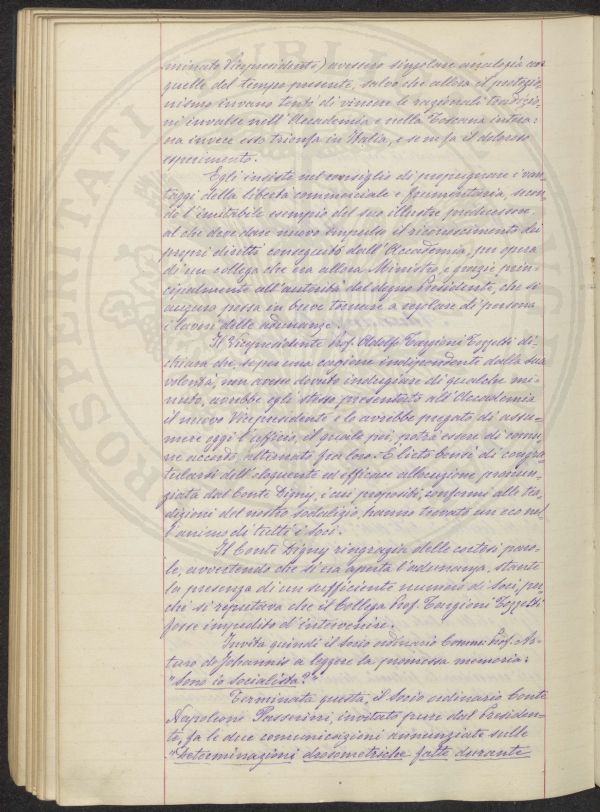 minato Vicepresidente) avessero singolare analogia con
quelle del tempo presente, salvo che allora il protezio-
nismo invano tentò di vincere le razionali tradizio-
ni invalse nell'Accademia e nella Toscana intera:
ora invece esso trionfa in Italia, e se ne fa il doloroso
esperimento.
Egli insiste nel consiglio di propugnare i van-
taggi della libertà commerciale e frumentaria, secon-
do l'imitabile esempio del suo illustre predecessore.
al che deve dare nuovo impulso il riconoscimento dei
propri diritti conseguito dall'Accademia, per opera
di un collega che era allora Ministro, e grazie prin-
cipalmente all'autorità del degno Presidente, che si
augura possa in breve tornare a regolare di persona
i lavori delle adunanze.
Il Vicepresidente Prof. Adolfo Targioni Tozzetti di-
chiara che, se per una cagione indipendente dalla sua
volontà, non avesse dovuto indugiare di qualche mi-
nuto, avrebbe egli stesso presentato all'Accademia
il nuovo Vicepresidente e lo avrebbe pregato di assu-
mere oggi l'ufficio, il quale poi, potrà essere di comu-
ne accordo, alternato fra loro. È lieto bensì di congra-
tularsi dell'eloquente ed efficace allocuzione pronun-
ziata dal Conte Digny, i cui propositi, conformi alle tra-
dizioni del nostro sodalizio, hanno trovato un eco nel-
l'animo di tutti i Soci.
Il Conte Digny ringrazia delle cortesi paro-
le, avvertendo che si era aperta l'adunanza, stante
la presenza di un sufficiente numero di Soci, per-
chè si reputava che il Collega Prof. Targioni Tozzetti
fosse impedito d'intervenire.
Invita quindi il Socio ordinario Comm. Prof. Ar-
turo de Johannis a leggere la promessa memoria:
"Sono io socialista?"
Terminata questa, il Socio ordinario Conte
Napoleone Passerini, invitato pure dal Presiden-
te, fa le due comunicazioni annunziate sulle
"Determinazioni drosometriche fatte durante